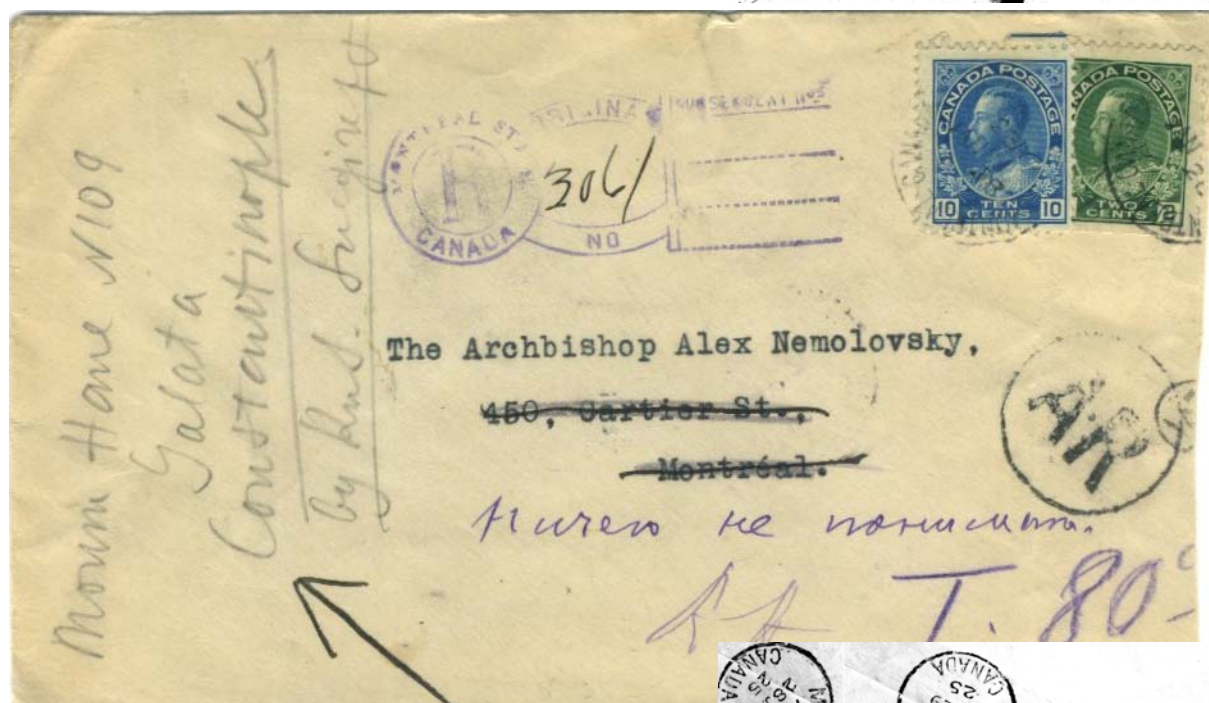 Moum Hane N109
Galata
Constantinople
by Rus.
MONTREAL
CANADA
ORIGINAL
3061
NO
SUBSEQUENT NOS
CANADA POSTAGE
10 TEN CENTS 10
CANADA POSTAGE
TWO CENTS 2
The Archbishop Alex Nemolovsky,
450, Cartier St.,
Montréal.
A.R
Ничего не понимаю.
T. 80c
CANADA
CANADA
25